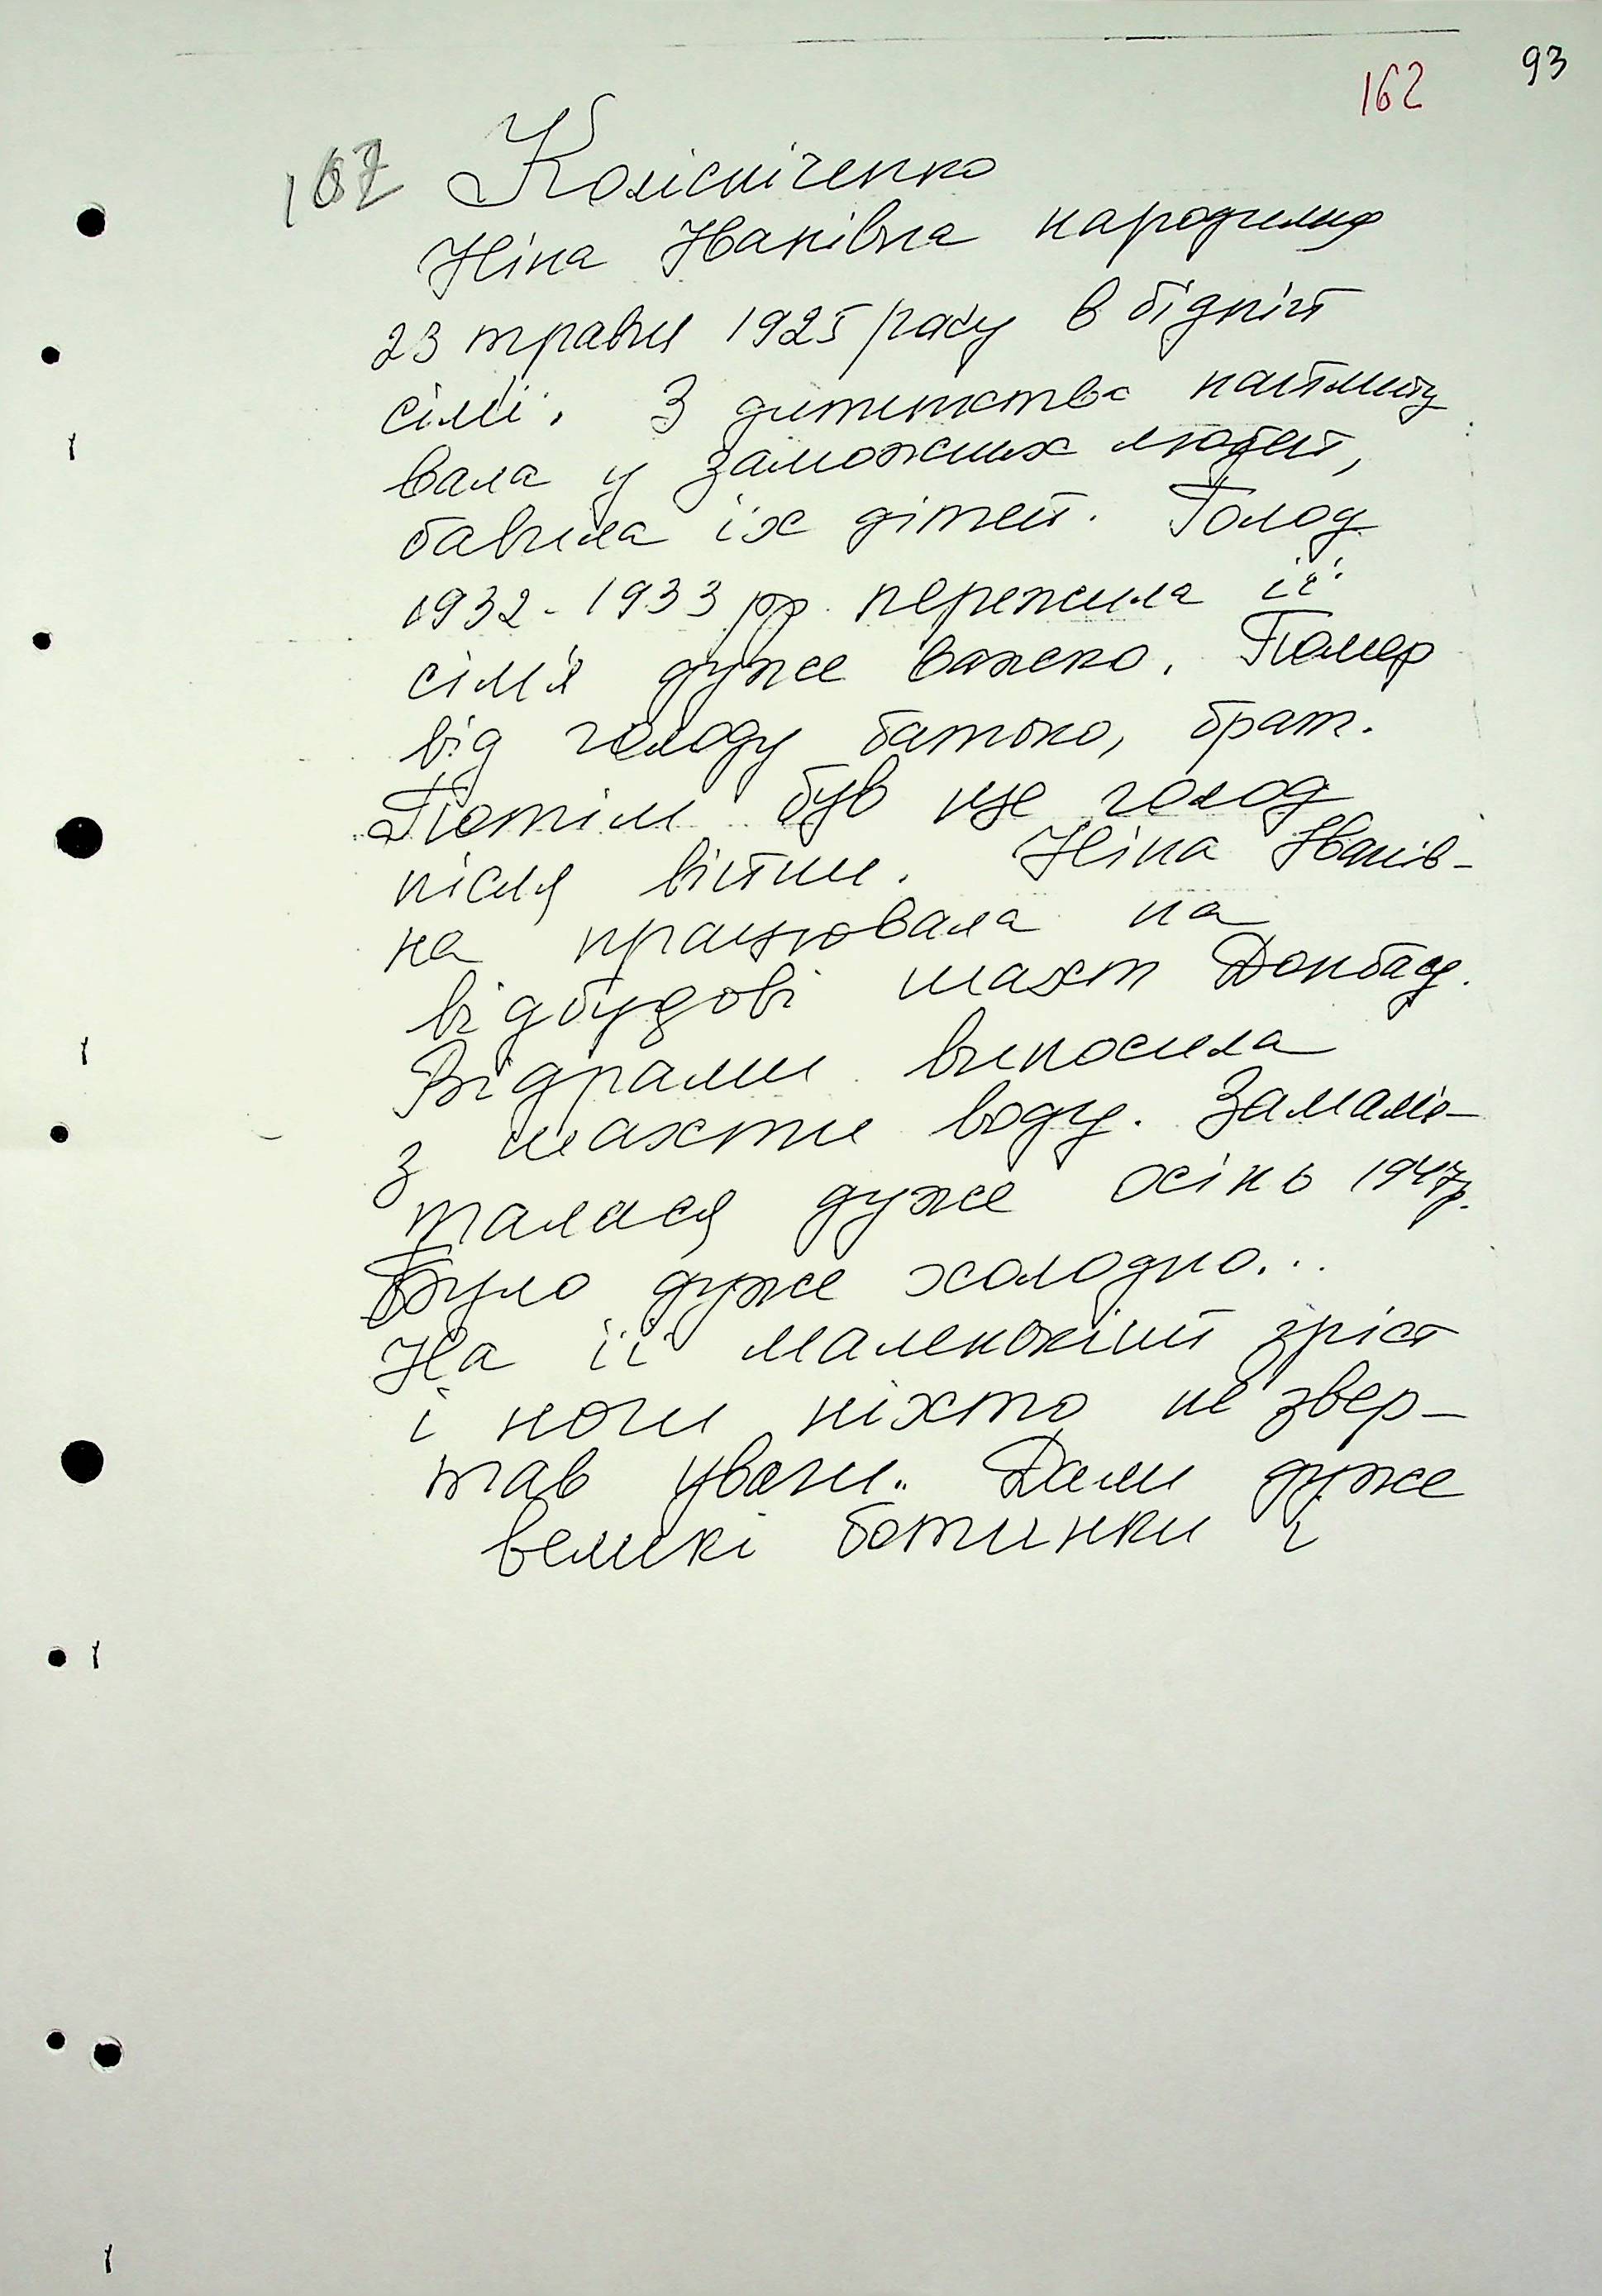 93
162
167 Колісніченко
Ніна Іванівна народилась
23 травня 1925 року в бідній
сімї. З дитинства наймиту
вала у заможних людей,
бавила їх дітей. Голод
1932-1933 рр. пережила її
сім'я дуже важко. Помер
від голоду батько, брат.
Потім був ще голод
після війни. Ніна Іванів-
на працювала на
відбудові шахт Донбасу.
Відрами виносила
з шахти воду. Запамя-
талася дуже осінь 1947р.
Було дуже холодно...
На її маленький зріст
і ноги ніхто не звер-
тав уваги.. Дали дуже
великі ботинки і